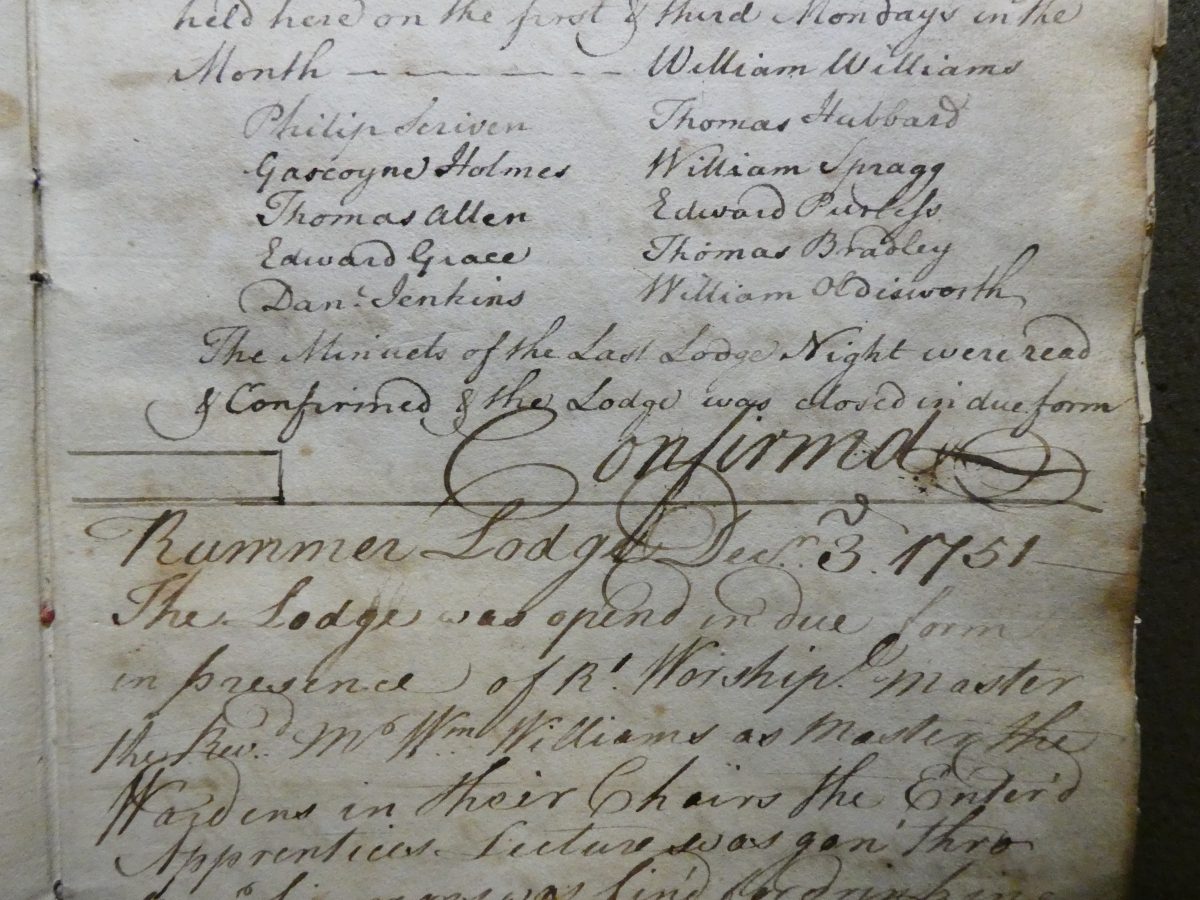 held here on the first & third Mondays in the
Month — — — — — — William Williams
Philip Scriven Thomas Hubbard
Gascoyne Holmes William Spragg
Thomas Allen Edward Purless
Edward Grace Thomas Bradley
Danl. Jenkins William Oldisworth
The Minuets of the Last Lodge Night were read
& Confirmed & the Lodge was closed in due form
Confirmd
Rummer Lodge Decr. 3d. 1751
The Lodge was opend in due form
in presence of Rt. Worshipl. Master
the Revd. Mr Wm Williams as Master the
Wardens in their Chairs the Enter'd
Apprentices Lecture was gon' thro
was fin'd for drinking